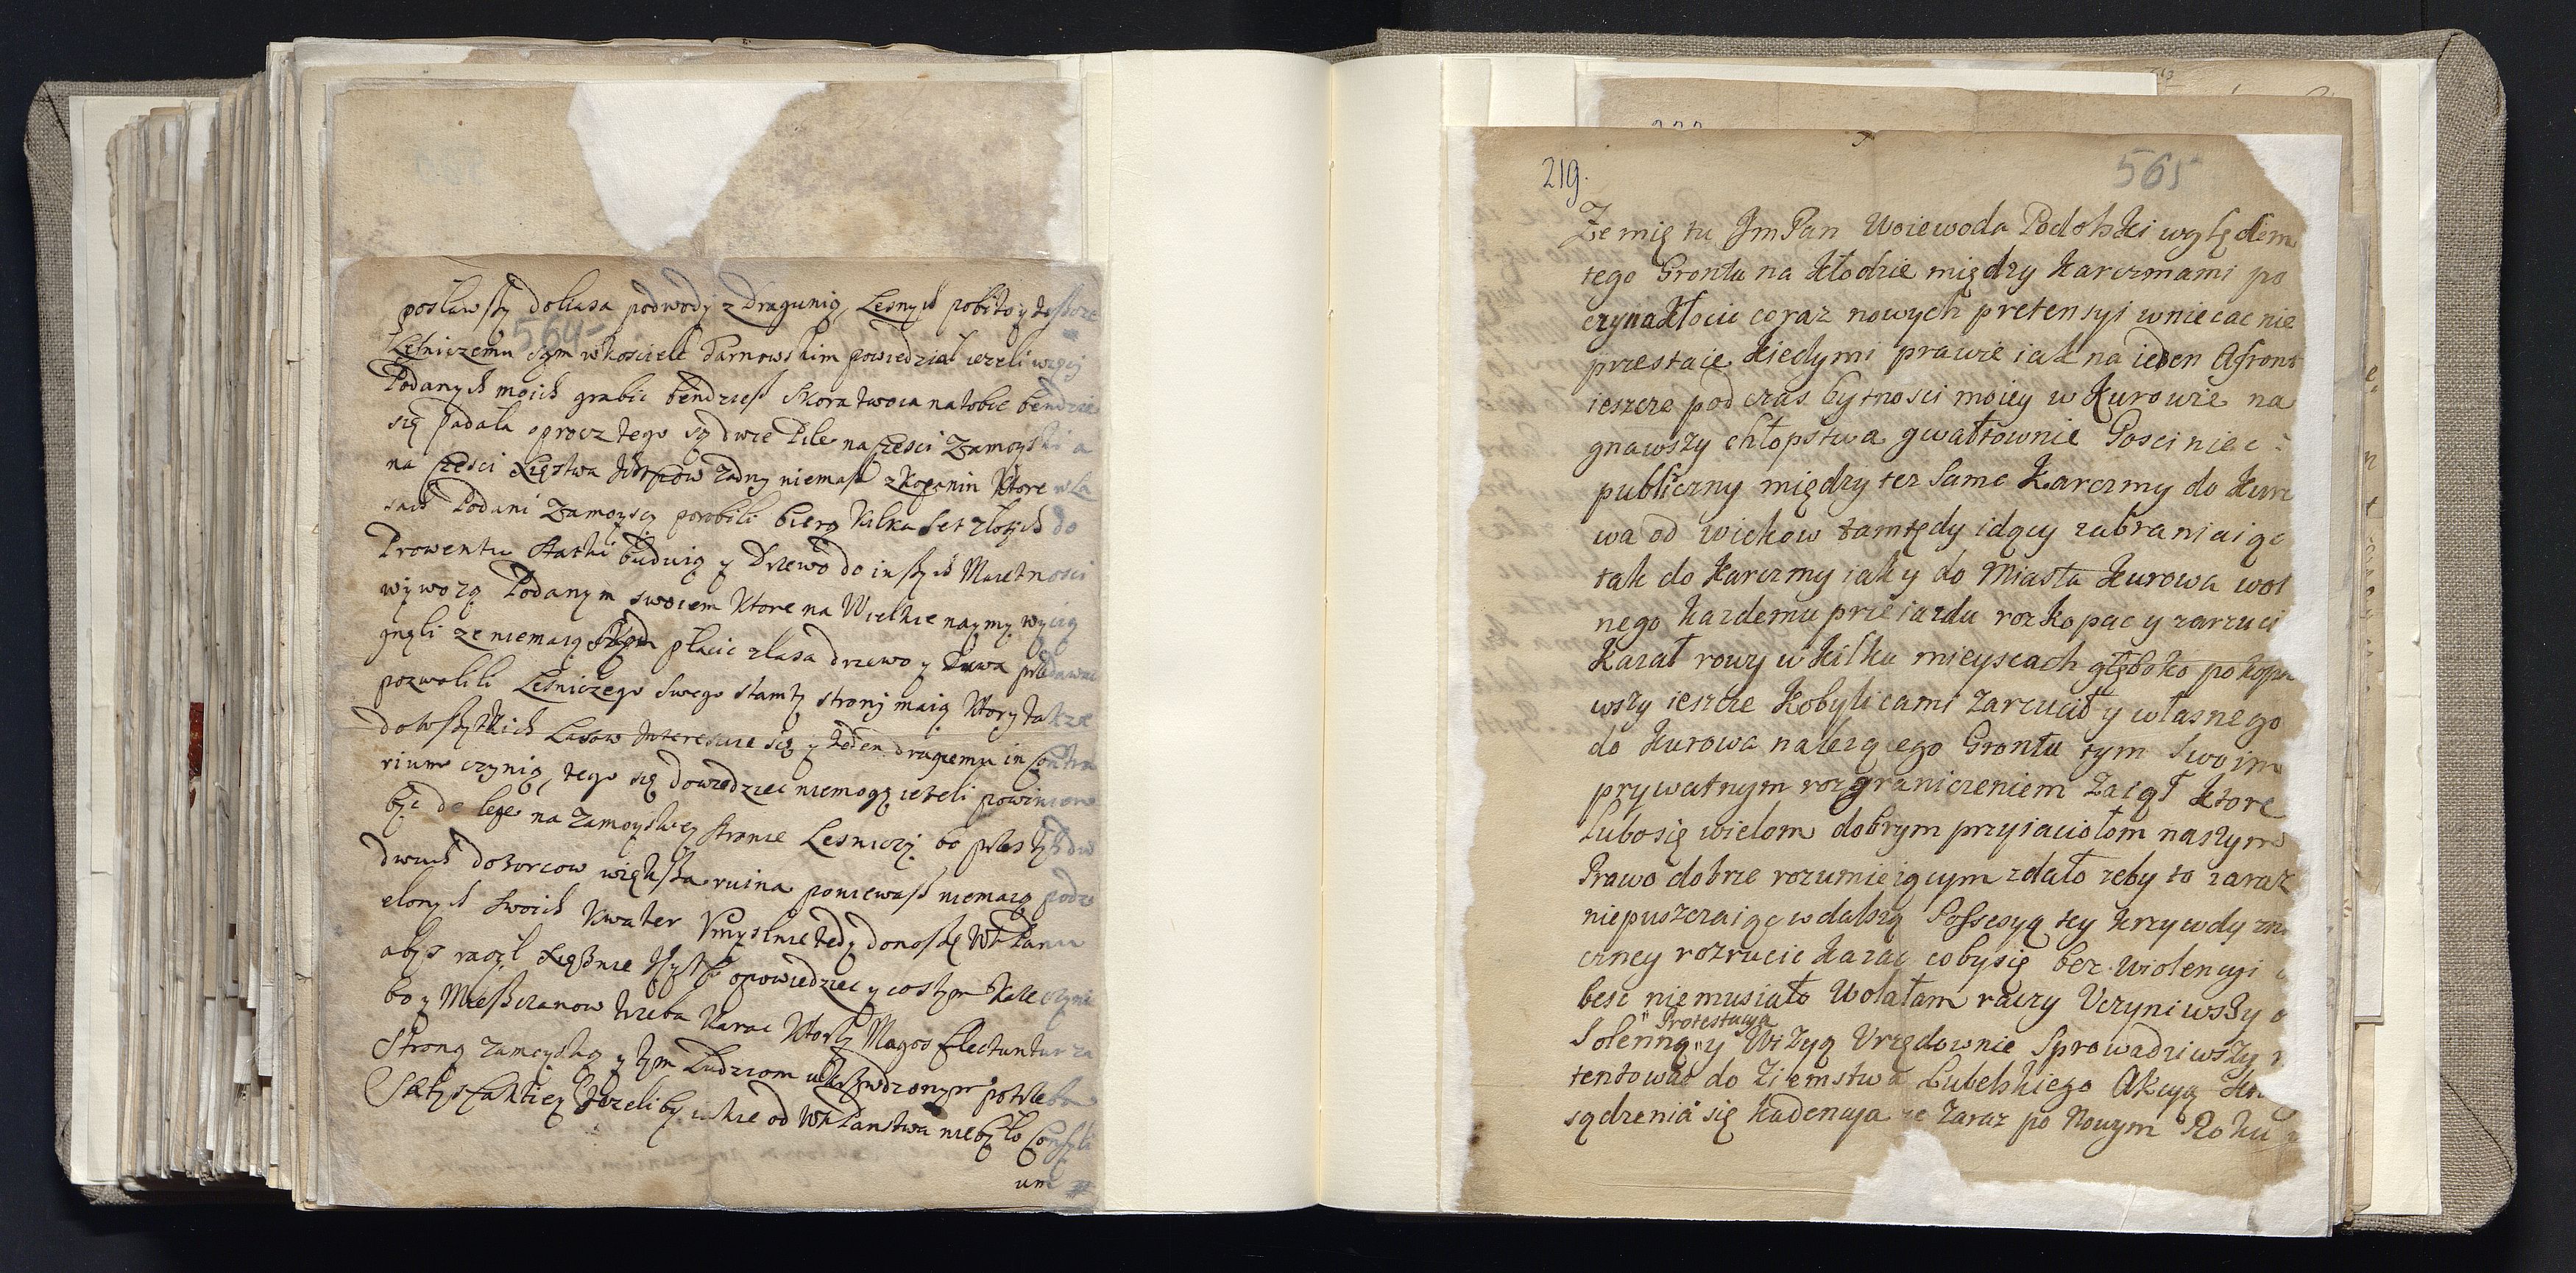 posławszy doliasa podwody z Dragunią, Lesnych pobito y teszcze
564
Lesniczemu sąm wkosciele Tarnowskim powiedział iezeli więcy
Podanych moich grabic bendziesz Skora twoia natobie bendzie
się padała oprocz tego są dwie Pile naczesci Zamoyski a
na Czesci Xięstwa zadny niemasz zkopanin Ktore wLa
sach Podani Zamoyscy porobili bierą Kilka Set złotych do
Prowentu Statki buduią y Drzewo do inszych Maiętnosci
wywozą Podanym swoiem Ktore na Wielkie naymy wycią
gnęli ze niemaią skąd płacic zlasa drzewo y przedawac
pozwolili Lesniczego Swego stamty strony maią Ktory takze
dowszytkich Lasow Interesuie się y ieden drugiemu in Contra
rium czynią, tego się dowiedziec niemogę iezeli powinien
byc de lege na Zamoyskiey stronie Lesniczy bo przes tych dw
dwuch dozorcow większa ruina poniewasz niemaią podzi
elonych swoich Kwater Vmyslnie tedy donoszę WMPanu
abys raczył Xiężnie opowiedziec y costym Kaze czynic
bo y Mieszczanow trzeba Karac Ktorzy Magos flectuntur za
Stroną zamoyską y tym Ludziom ukrzywdzonym potrzeba
Satysfaktiey Jezeliby iakie od WMPanstwa niebyło Consyli
um

219.
565
Ze mię tu JmPan Woiewoda Podolski względem
tego Grontu na Kłodzie między Karczmami po
czyna Kłocic coraz nowych pretensyi wniecac nie
przestaie Kiedymi prawie iak na ieden Afront
ieszcze pod czas bytnosci moiey w Kurowie na
gnawszy chłopstwa gwałtownie Gosciniec
publiczny między tez same Karczmy do Kuro
wa od wiekow tamtędy idący zabraniaiąc
tak do Karczmy iak y do Miasta Kurowa wol
nego Kazdemu przeiazdu rozkopac y zarzuci
Kazał rowy w Kilku mieyscach głęboko pokopa
wszy ieszcze Kobylicami zarzucił y własnego
do Kurowa nalezącego Grontu tym swoim
prywatnym rozgraniczeniem zaiął Ktore
Lubosię wielom dobrym przyiaciołom naszym
Prawo dobrze rozumieiącym zdało zeby to zaraz
niepuszczaiąc wdalszą Possesyą tey Krzywdy zna
czney rozrucic Kazac cobysię bez wiolencyi
besc niemusiało Wolałam raczy Vczyniwszy
Protestacyą
Solenną y Wizyą Vrzędownie Sprowadziwszy
tentowac do Ziemstwa Lubelskiego Akcyą
sądzenia się Kadencya ze zaraz po Nowym Roku